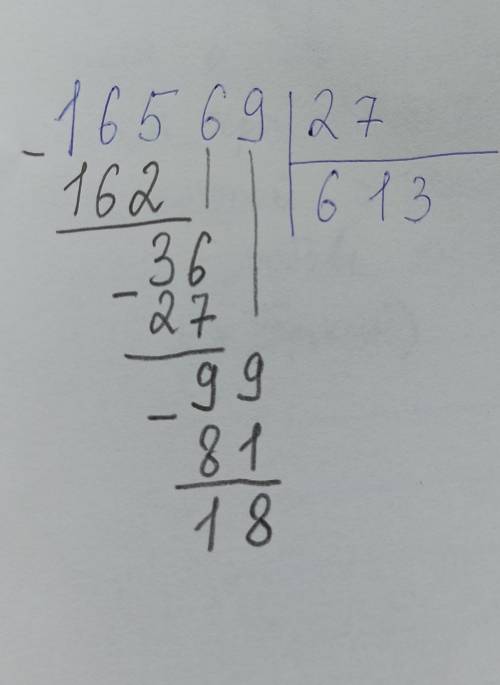 16569 | 27
- 162 | 613
- 36
27
- 99
81
18